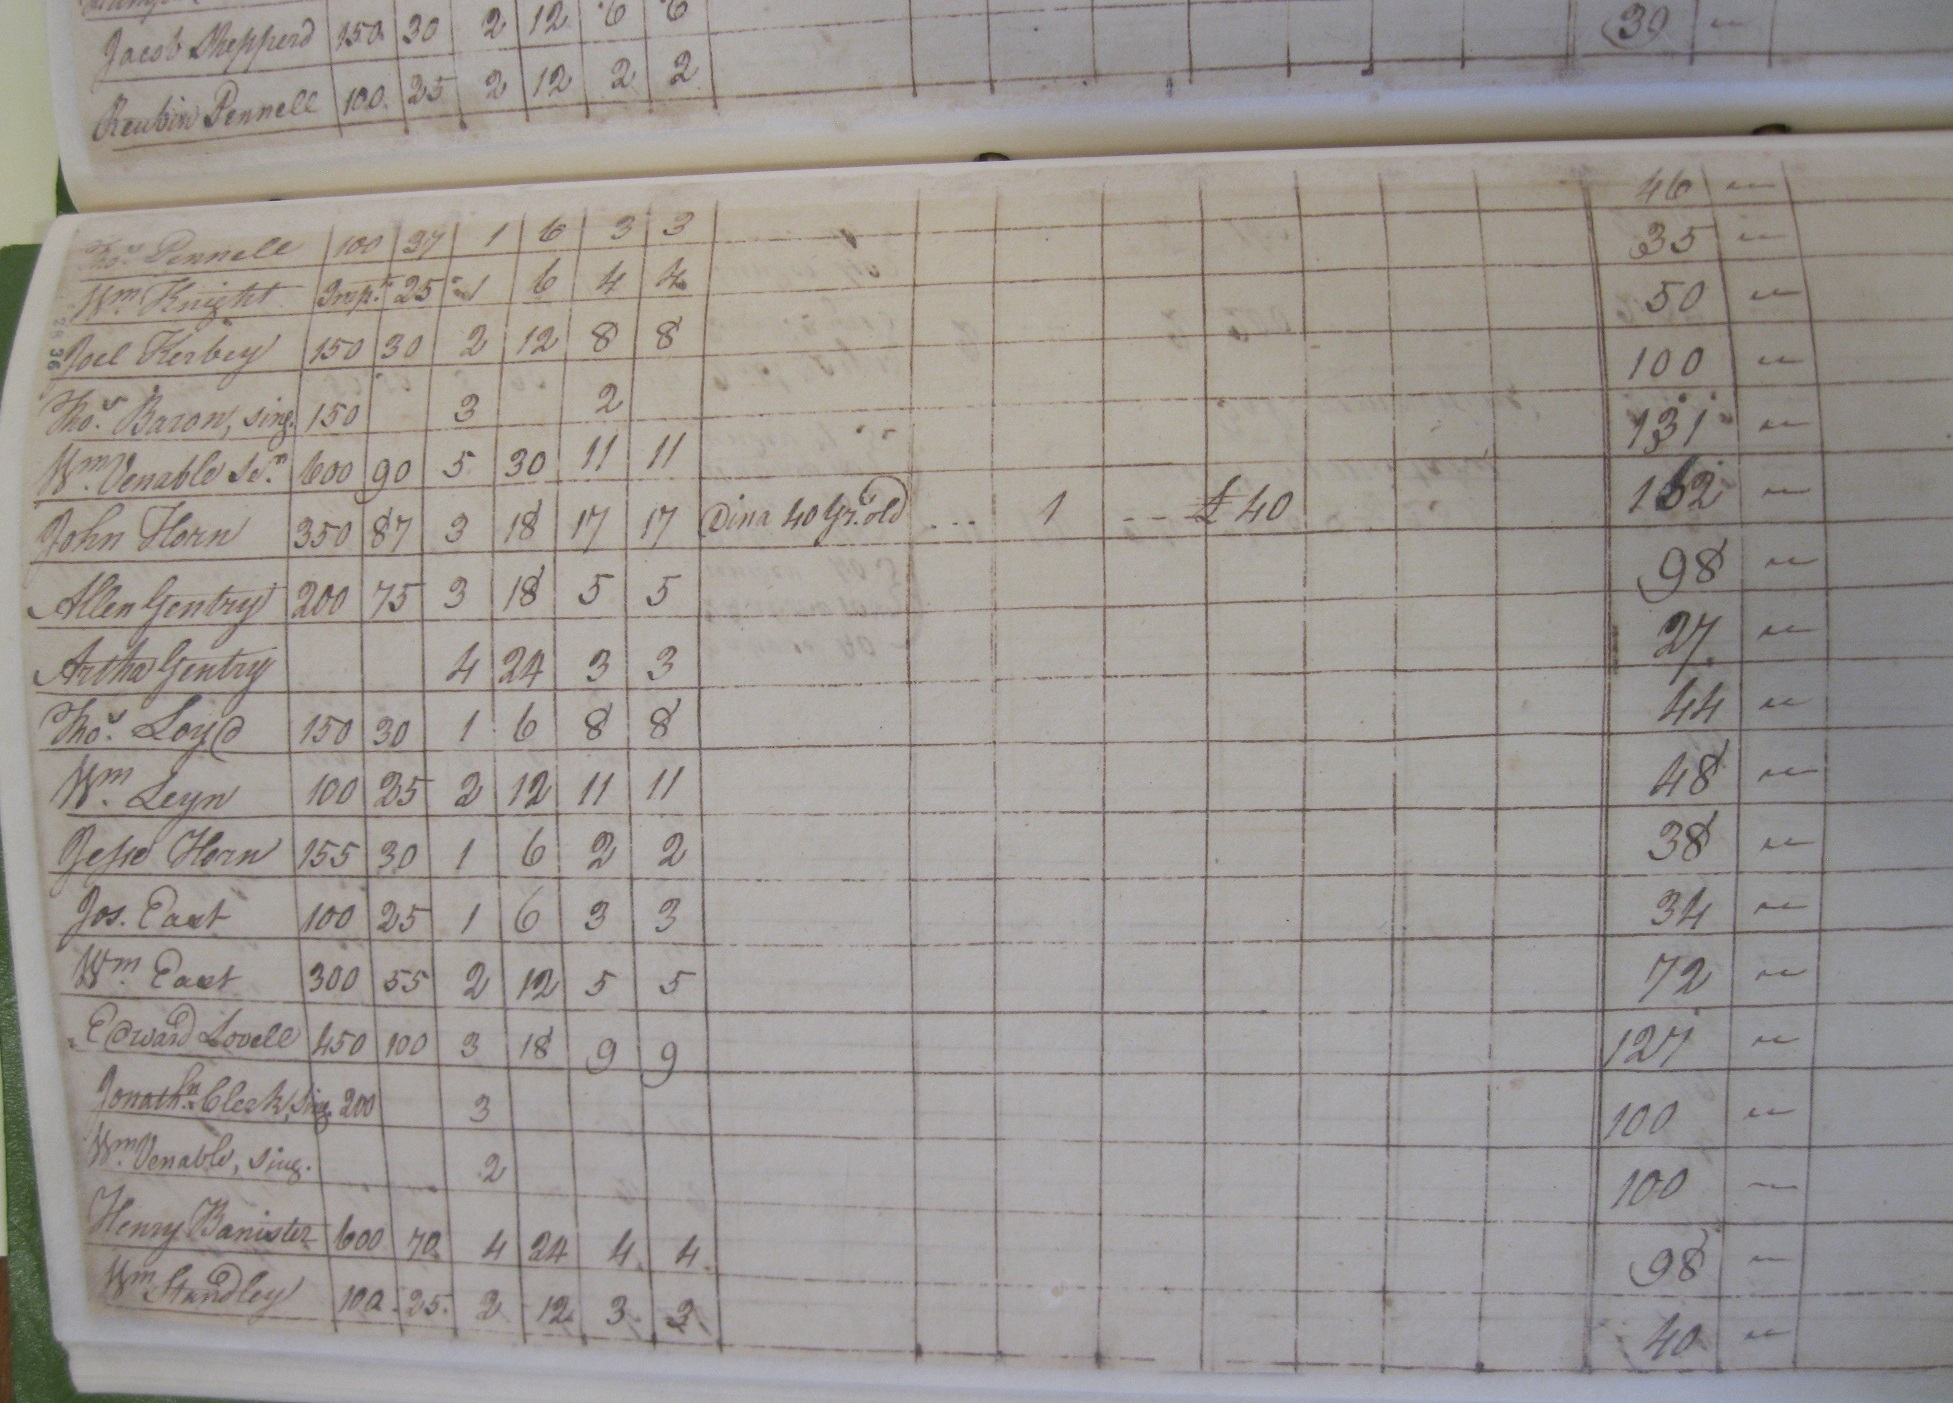 Jacob Shepperd 150 30 2 12 6 6 39 "
Reubin Pennell 100 25 2 12 2 2
46 "
Thos. Pennell 100 37 1 6 3 3 35 "
Wm. Knight Impt. 25 1 6 4 4 50 "
Joel Kerbey 150 30 2 12 8 8 100 "
Thos. Baron, sing. 150 3 2 131 "
Wm. Venable Sen. 600 90 5 30 11 11 162 "
John Horn 350 87 3 18 17 17 Dina 40 Yr. old ... 1 -- £40
Allen Gentry 200 75 3 18 5 5 98 "
Artha Gentry 4 24 3 3 27 "
Thos. Loyd 150 30 1 6 8 8 44 "
Wm. Leyn 100 25 2 12 11 11 48 "
Jesse Horn 155 30 1 6 2 2 38 "
Jos. East 100 25 1 6 3 3 34 "
Wm. East 300 55 2 12 5 5 72 "
Edward Lovell 450 100 3 18 9 9 127 "
Jonathn. Cleck, sing. 200 3 100 "
Wm. Venable, sing. 2 100 "
Henry Banister 600 70 4 24 4 4 98 "
Wm. Standley 100 25 2 12 3 3 40 "